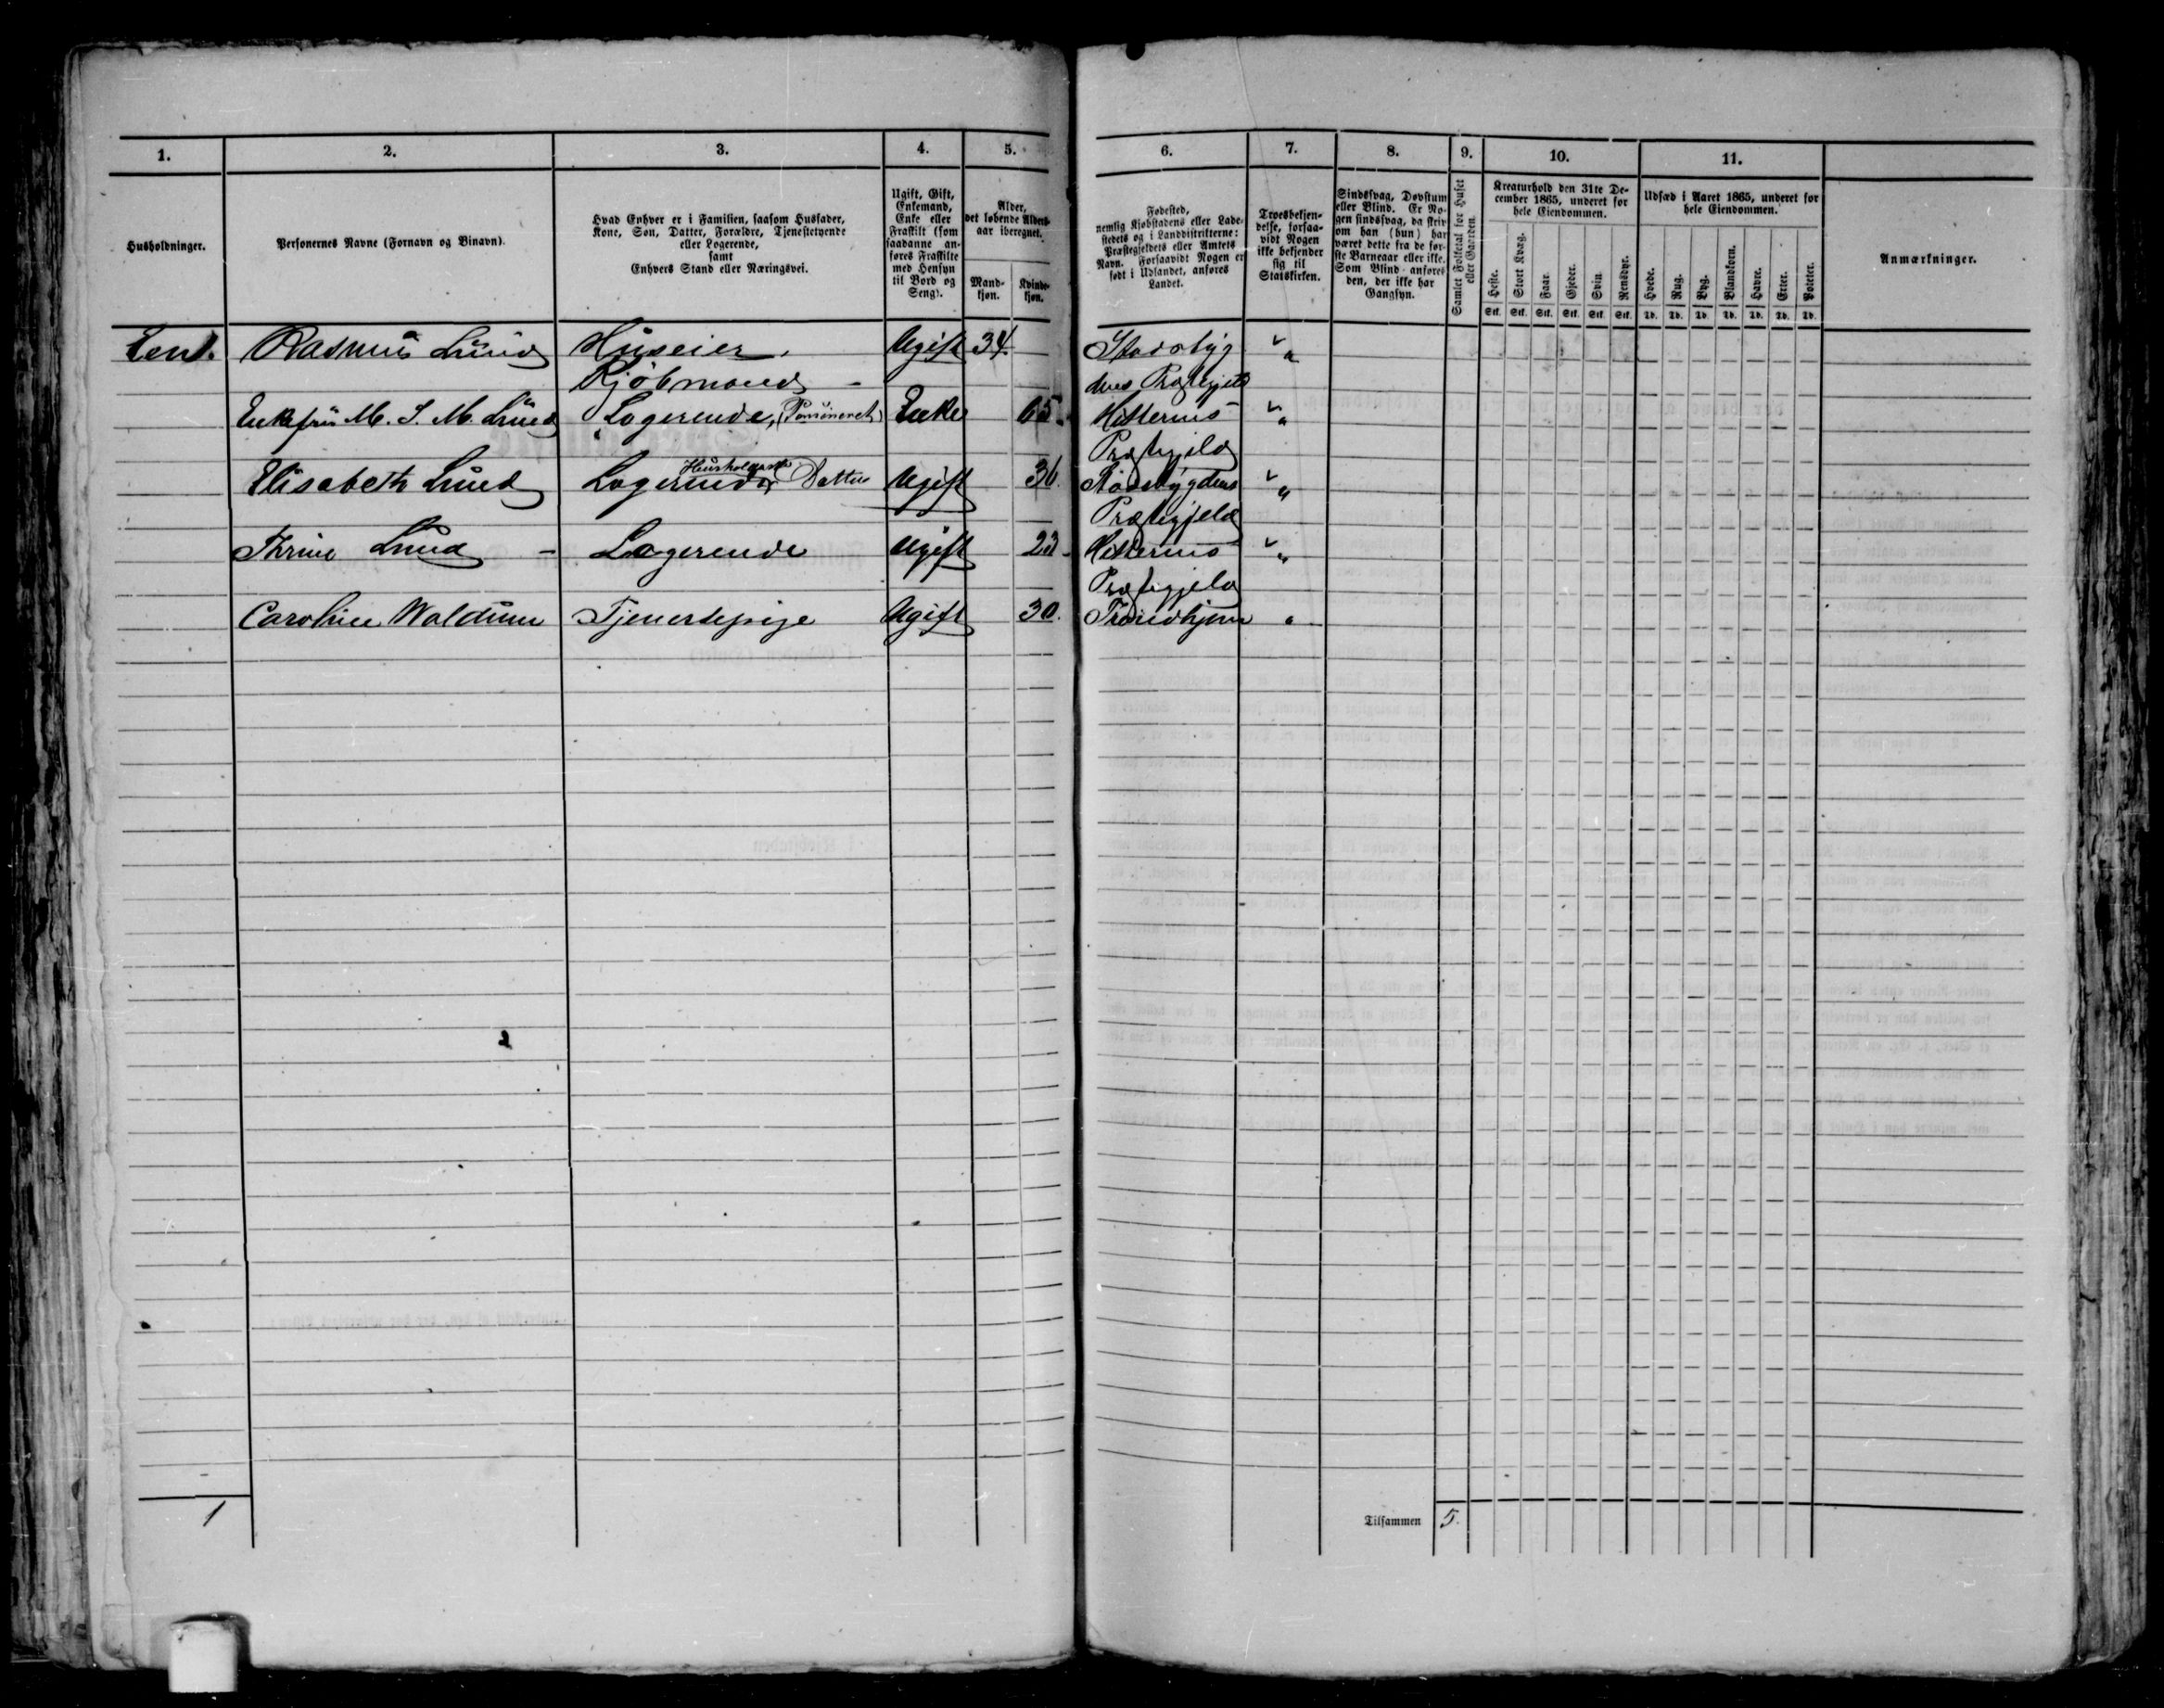 1.
2.
3.
4.
5.
6.
7.
8.
9.
10.
11.
Husholdninger.
Personernes Navne (Fornavn og Binavn).
Hvad Enhver er i Familien, saasom Husfader,
Kone, Søn, Datter, Forældre, Tjenestetyende
eller Logerende,
samt
Enhvers Stand eller Næringsvei.
Ugift, Gift,
Enkemand,
Enke eller
Fraskilt (som
saadanne an-
føres Fraskilte
med Hensyn
til Bord og
Seng).
Alder,
det løbende Alders-
aar iberegnet.
Mand-
kjøn.
Kvinde-
kjøn.
Fødested,
nemlig Kjøbstadens eller Lade-
stedets og i Landdistrikterne:
Præstegjeldets eller Amtets
Navn. Forsaavidt Nogen er
født i Udlandet, anføres
Landet.
Troesbekjen-
delse, forsaa-
vidt Nogen
ikke bekjender
sig til
Statskirken.
Sindssvag, Døvstum
eller Blind. Er No-
gen sindssvag, da skriv
om han (hun) har
været dette fra de før-
ste Barneaar eller ikke.
Som Blind anføres
den, der ikke har
Gangsyn.
Samlet Folketal for Huset
eller Gaarden.
Kreaturhold den 31te De-
cember 1865, underet for
hele Eiendommen.
Heste.
Stort Kvæg.
Faar.
Gjeder.
Svin.
Rensdyr.
Stk. Stk. Stk. Stk. Stk. Stk.
Udsæd i Aaret 1865, underet for
hele Eiendommen.
Hvede.
Rug.
Byg.
Blandkorn.
Havre.
Erter.
Poteter.
Td. Td. Td. Td. Td. Td. Td.
Anmærkninger.
Een 1. Rasmus Lund Huseier. Ugift 34. Stadsbyg „
Kjöbmand - dens Præstegjeld
Enkefru M. S. M. Lund Logerende, (Pensioneret) Enke 65. Hitterens „
Præstegjeld
Elisabeth Lund Logerende Datter Ugift 36. Stadsbygdens „
Præstegjeld
Thrine Lund - Logerende Ugift 23 Hitterens „
Præstegjeld
Caroline Waldum Tjenestepige Ugift 30. Trondhjem „
1
Tilsammen 5.